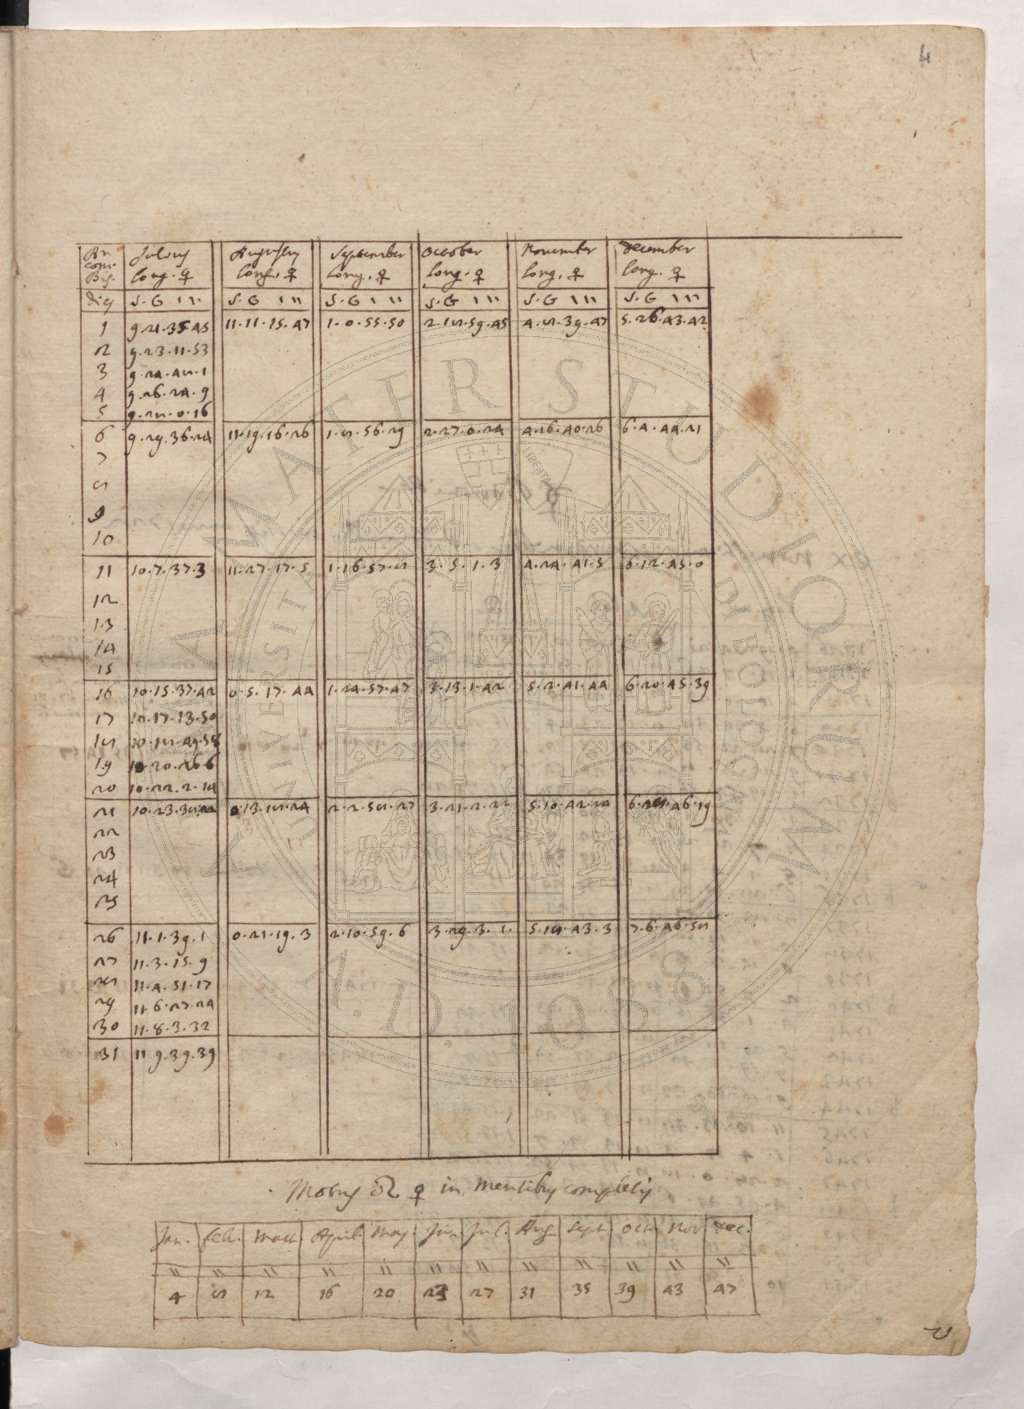 4
An. Julius Augustus September October November December
com.
Bis. long. ♀ long. ♀ long. ♀ long. ♀ long. ♀ long. ♀
dies S. G ' '' S. G ' '' S. G ' '' S. G ' '' S. G ' '' S. G ' ''
1 9.21.35.45 11.11.15.47 1.0.55.50 2.18.59.45 4.8.39.47 5.26.43.42
2 9.23.11.53
3 9.24.48.1
4 9.26.24.9
5 9.28.0.16
6 9.29.36.24 11.19.16.26 1.8.56.29 2.27.0.24 4.16.40.26 6.4.44.21
7
8
9
10
11 10.7.37.3 11.27.17.5 1.16.57.8 3.5.1.3 4.24.41.5 6.12.45.0
12
13
14
15
16 10.15.37.42 0.5.17.44 1.24.57.47 3.13.1.42 5.2.41.44 6.20.45.39
17 10.17.13.50
18 10.18.49.58
19 10.20.26.6
20 10.22.2.14
21 10.23.38.22 0.13.18.24 2.2.58.27 3.21.2.22 5.10.42.24 6.28.46.19
22
23
24
25
26 11.1.39.1 0.21.19.3 2.10.59.6 3.29.3.1. 5.18.43.3 7.6.46.58
27 11.3.15.9
28 11.4.51.17
29 11.6.27.24
30 11.8.3.32
31 11.9.39.39
Motus ☊ ♀ in mensibus completis
Jan. Feb. Mart. April. May. Jun. Jul. Aug. Sept. Oct. Nov. Dec.
'' '' '' '' '' '' '' '' '' '' '' ''
4 8 12 16 20 23 27 31 35 39 43 47
ALMA MATER STUDIORUM
A.D. 1088